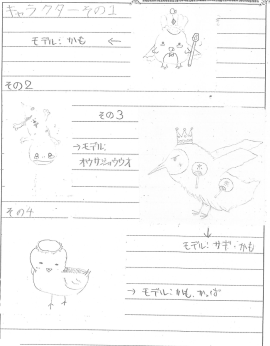 キャラクターその1
モデル:かも ←
その2
その3
→モデル:
オウサニョウウオ
その4
モデル:サギ・かも
→モデル:かも、かっぱ